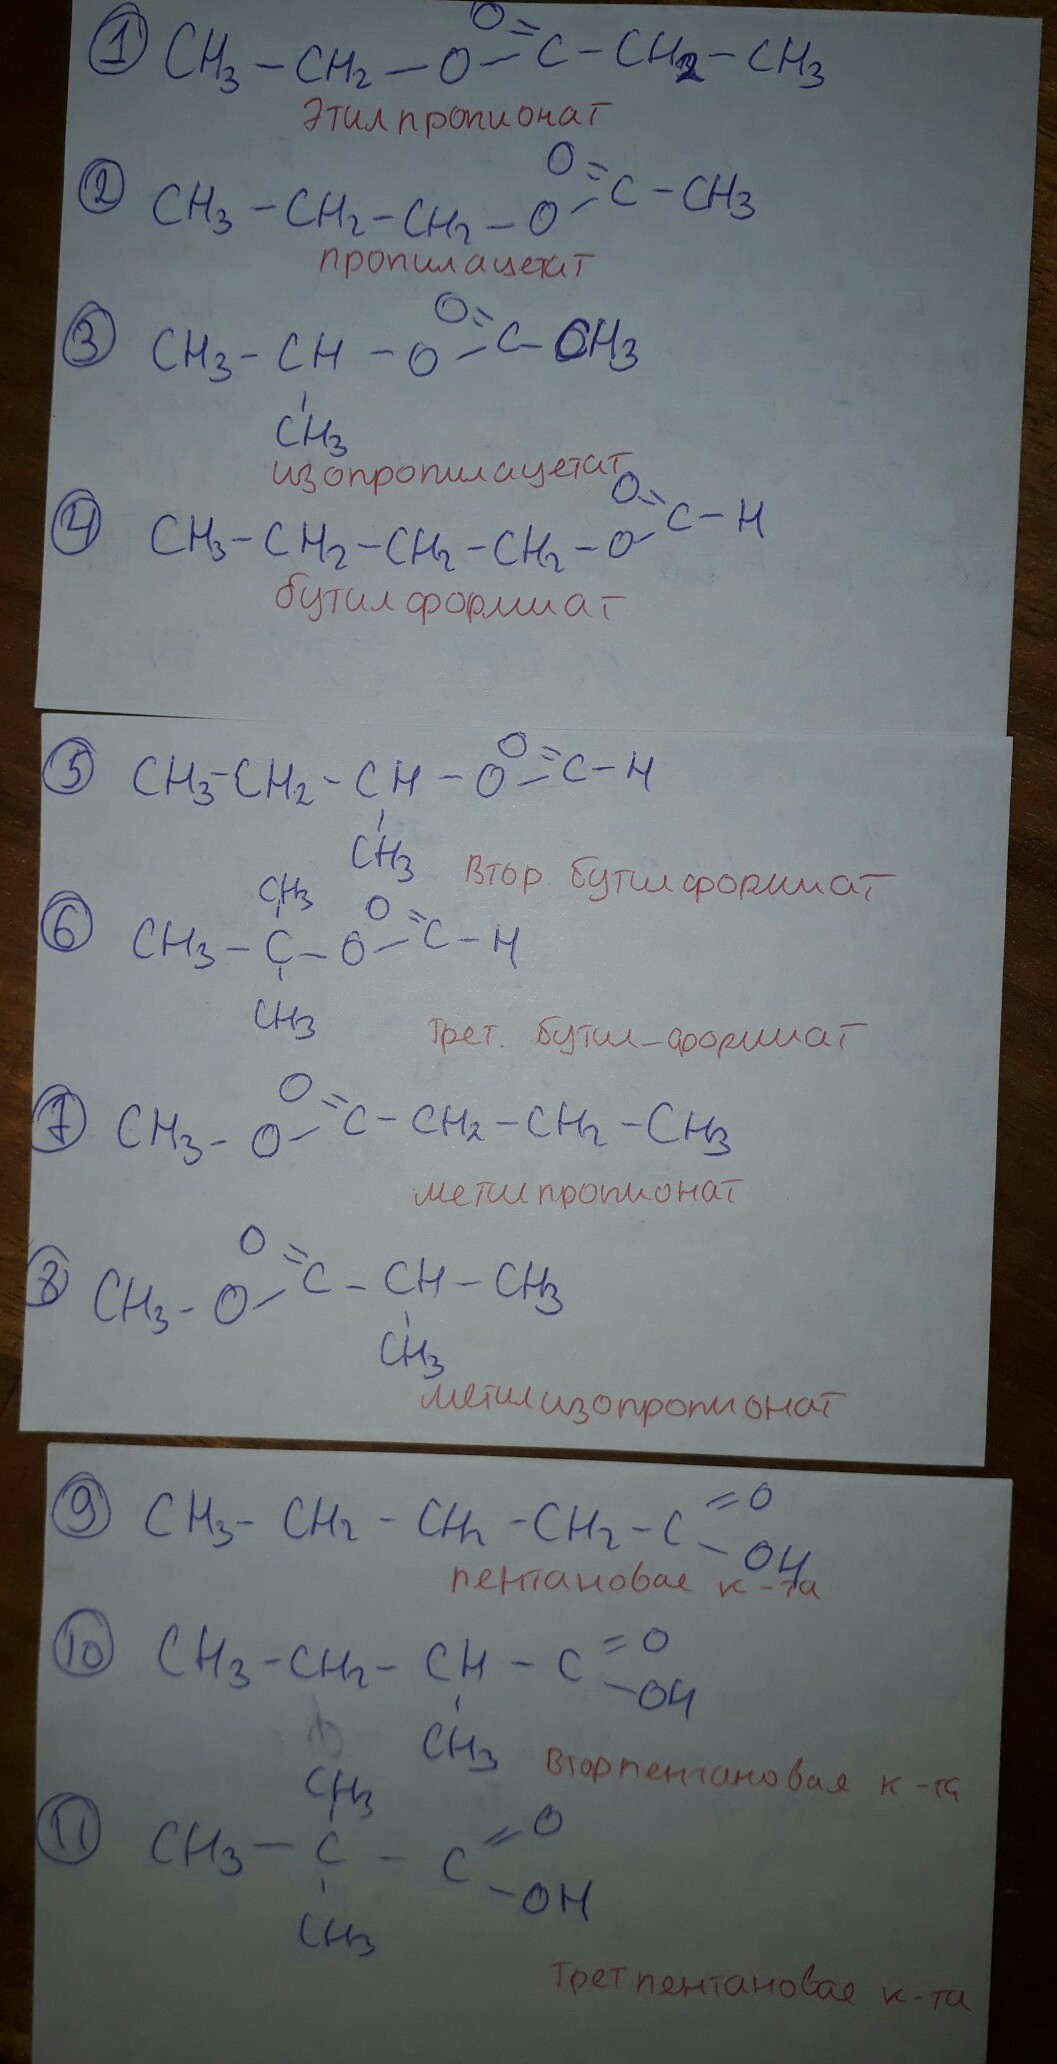 ① CH₃ – CH₂ – O – C(=O) – CH₂ – CH₃
Этилпропионат
② CH₃ – CH₂ – CH₂ – O – C(=O) – CH₃
пропилацетат
③ CH₃ – CH – O – C(=O) – CH₃
CH₃
изопропилацетат
④ CH₃ – CH₂ – CH₂ – CH₂ – O – C(=O) – H
бутилформиат
⑤ CH₃ – CH₂ – CH – O – C(=O) – H
CH₃
Втор. бутилформиат
CH₃
⑥ CH₃ – C – O – C(=O) – H
CH₃
Трет. бутил-формиат
⑦ CH₃ – O – C(=O) – CH₂ – CH₂ – CH₃
метилпропионат
8 CH₃ – O – C(=O) – CH – CH₃
CH₃
метилизопропионат
⑨ CH₃ – CH₂ – CH₂ – CH₂ – C(=O) – OH
пентановая к-та
⑩ CH₃ – CH₂ – CH – C(=O) – OH
CH₃
Вторпентановая к-та
CH₃
⑪ CH₃ – C – C(=O) – OH
CH₃
Третпентановая к-та